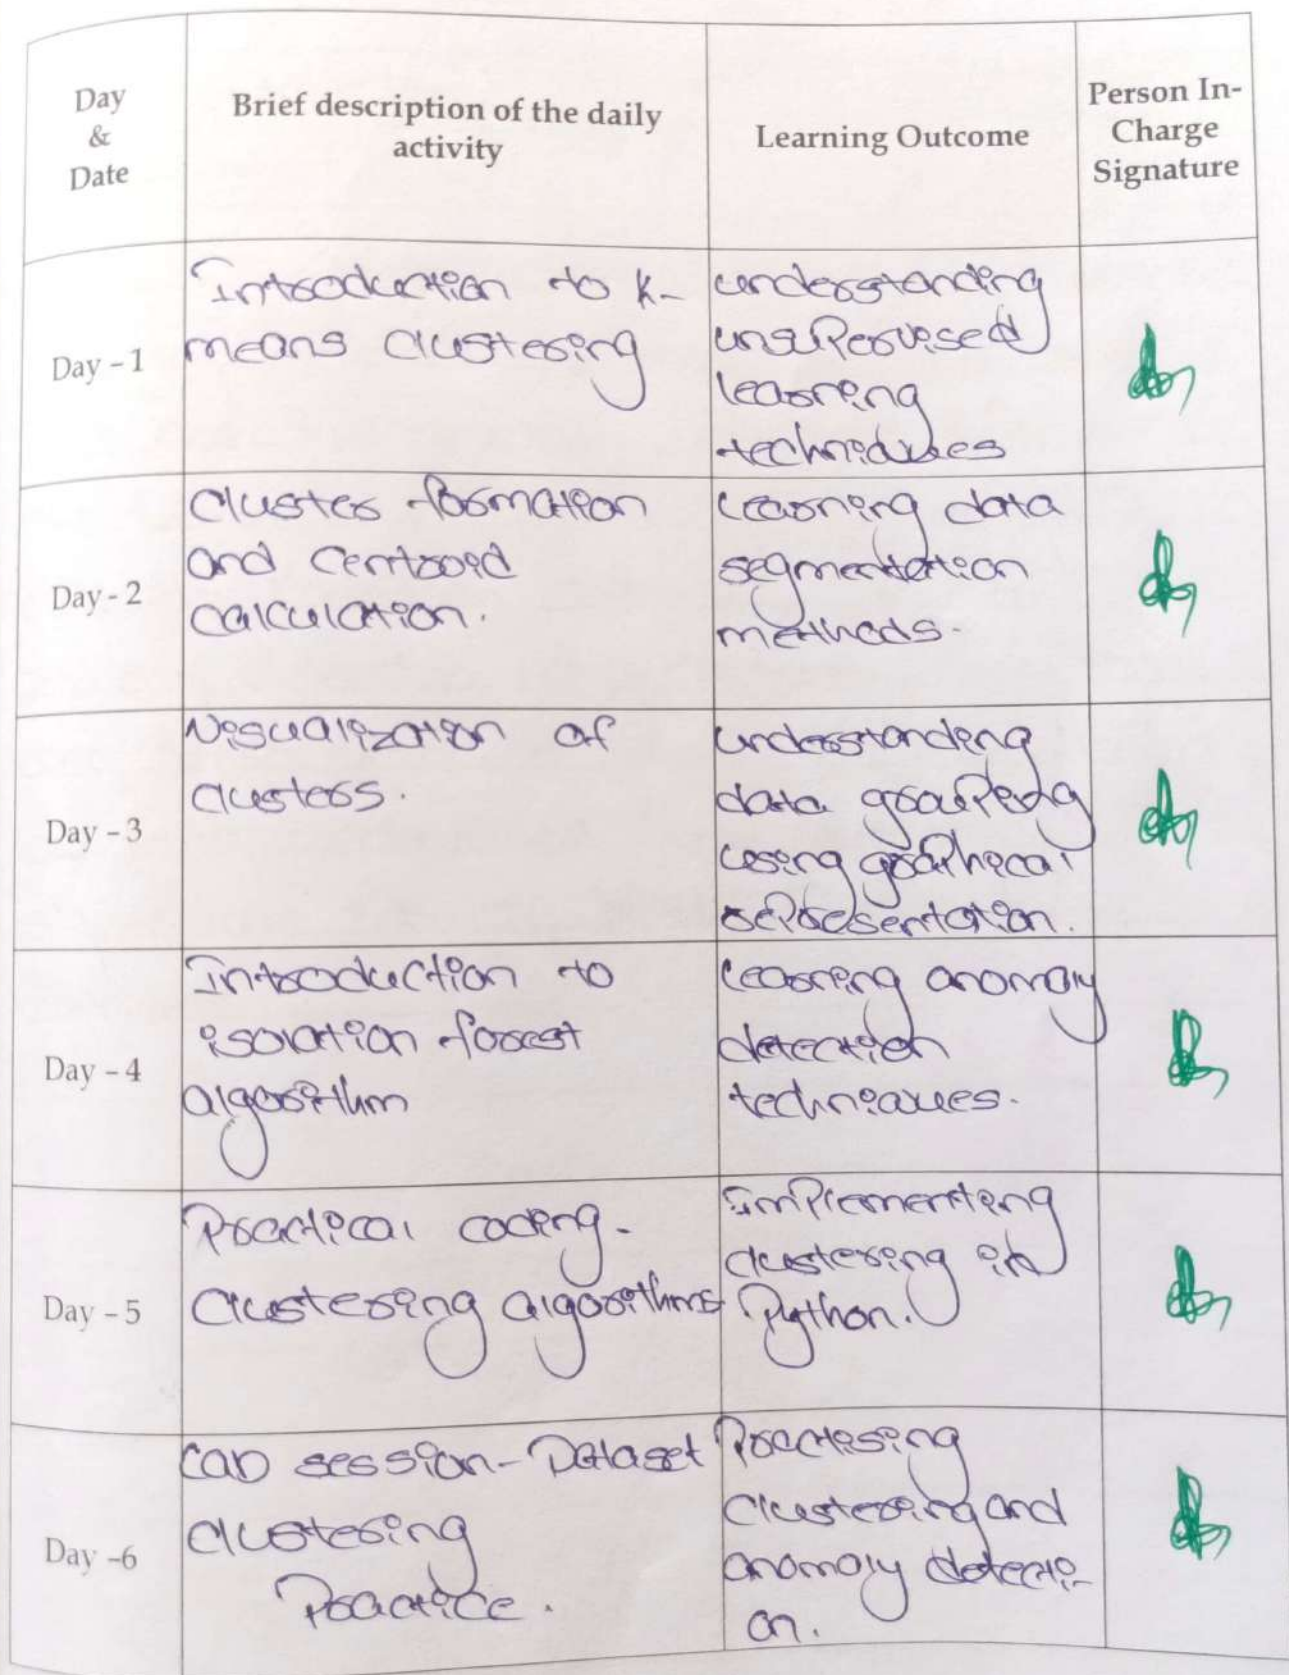 Day & Date
Brief description of the daily activity
Learning Outcome
Person In-Charge Signature
Day – 1
Introduction to K-
means clustering
understanding
unsupervised
learning
techniques
Day - 2
Cluster formation
and Centroid
calculation.
Learning data
segmentation
methods.
Day – 3
Visualization of
clusters.
understanding
data grouping
using graphical
representation.
Day – 4
Introduction to
isolation forest
algorithm
Learning anomaly
detection
techniques.
Day – 5
Practical coding-
Clustering algorithms
Implementing
clustering in
Python.
Day –6
Lab session- Dataset
clustering
Practice.
Practising
clustering and
anomaly detecti-
on.